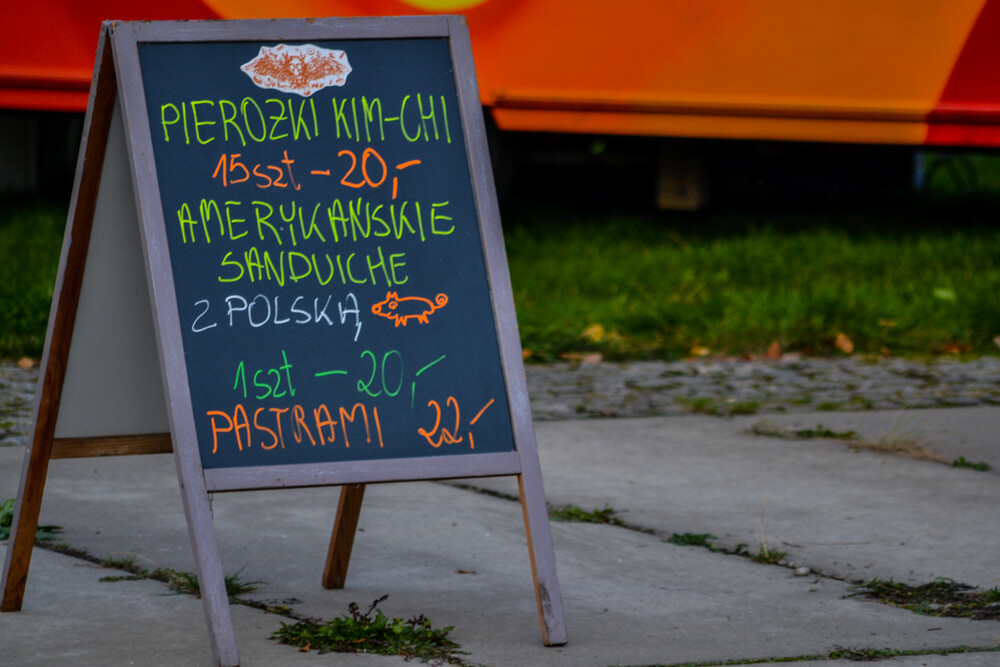 PIEROŻKI KIM-CHI
15szt - 20,-
AMERYKAŃSKIE
SANDUICHE
Z POLSKĄ
1szt - 20,-
PASTRAMI 22,-